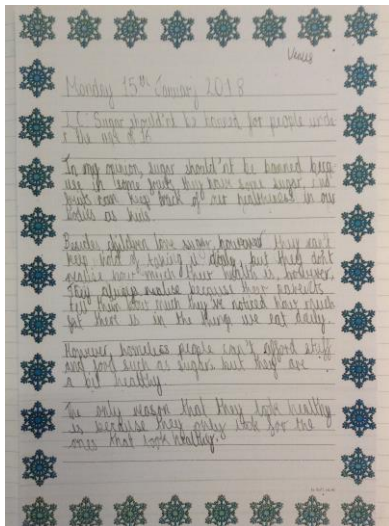 Venus
Monday 15th January 2018
I.C. Sugar should'nt be banned for people unde
r the age of 16
In my opinion, sugar should'nt be banned beca
use in some fruits they have some sugar, and
fruits can keep track of our healthiness in our
bodies as kids.
Besides children love sugar, however they can't
keep hold of taking it daily, but they don't
realise how much their health is, however,
They always realise because their parents
tell them how much they've noticed how much
fat there is in the things we eat daily.
However, homeless people can't afford stuff
and food such as sugar, but they are
a bit healthy.
The only reason that they look healthy
is because they only look for the
ones that look healthy.